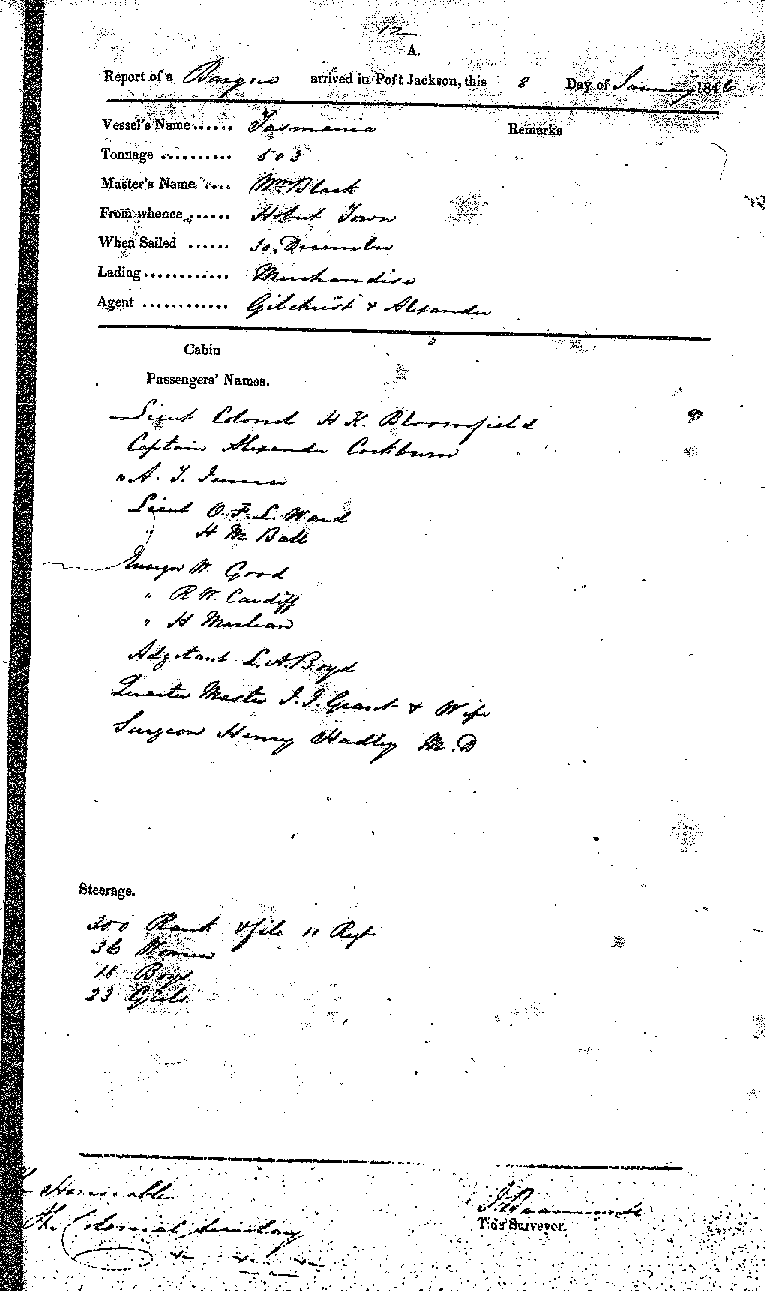 12
A.
Report of a Barque arrived in Port Jackson, this 8 Day of January 1846
Vessel's Name...... Tasmania Remarks
Tonnage .......... 503
Master's Name .... Wm Black
From whence ...... Hobart Town
When Sailed ...... 30, December
Lading............ Merchandise
Agent ............ Gilchrist & Alexander
Cabin
Passengers' Names.
Lieut Colonel H K. Bloomfield
Captain Alexander Cockburn
" A. T.
Lieut O. F. L. Ward
" H M Ball
Ensign W. Good
" R W. Cardiff
" H Maclean
Adjutant L. A. Boyd
Quarter Master J. J. Grant & Wife
Surgeon Henry Hadley M.D
Steerage.
200 Rank & file 11 Regt
36 Women
18 Boys
23 Girls
The Honorable
The Colonial Secretary
Tide Surveyor.